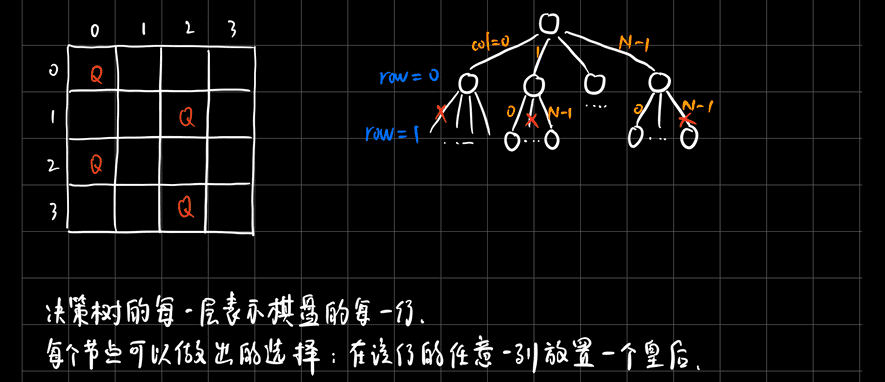 0 1 2 3
0 Q
1 Q
2 Q
3 Q
col=0 1 N-1
row=0
0 N-1 .... 0 N-1
row=1
... ... ...
决策树的每一层表示棋盘的每一行.
每个节点可以做出的选择：在该行的任意一列放置一个皇后.